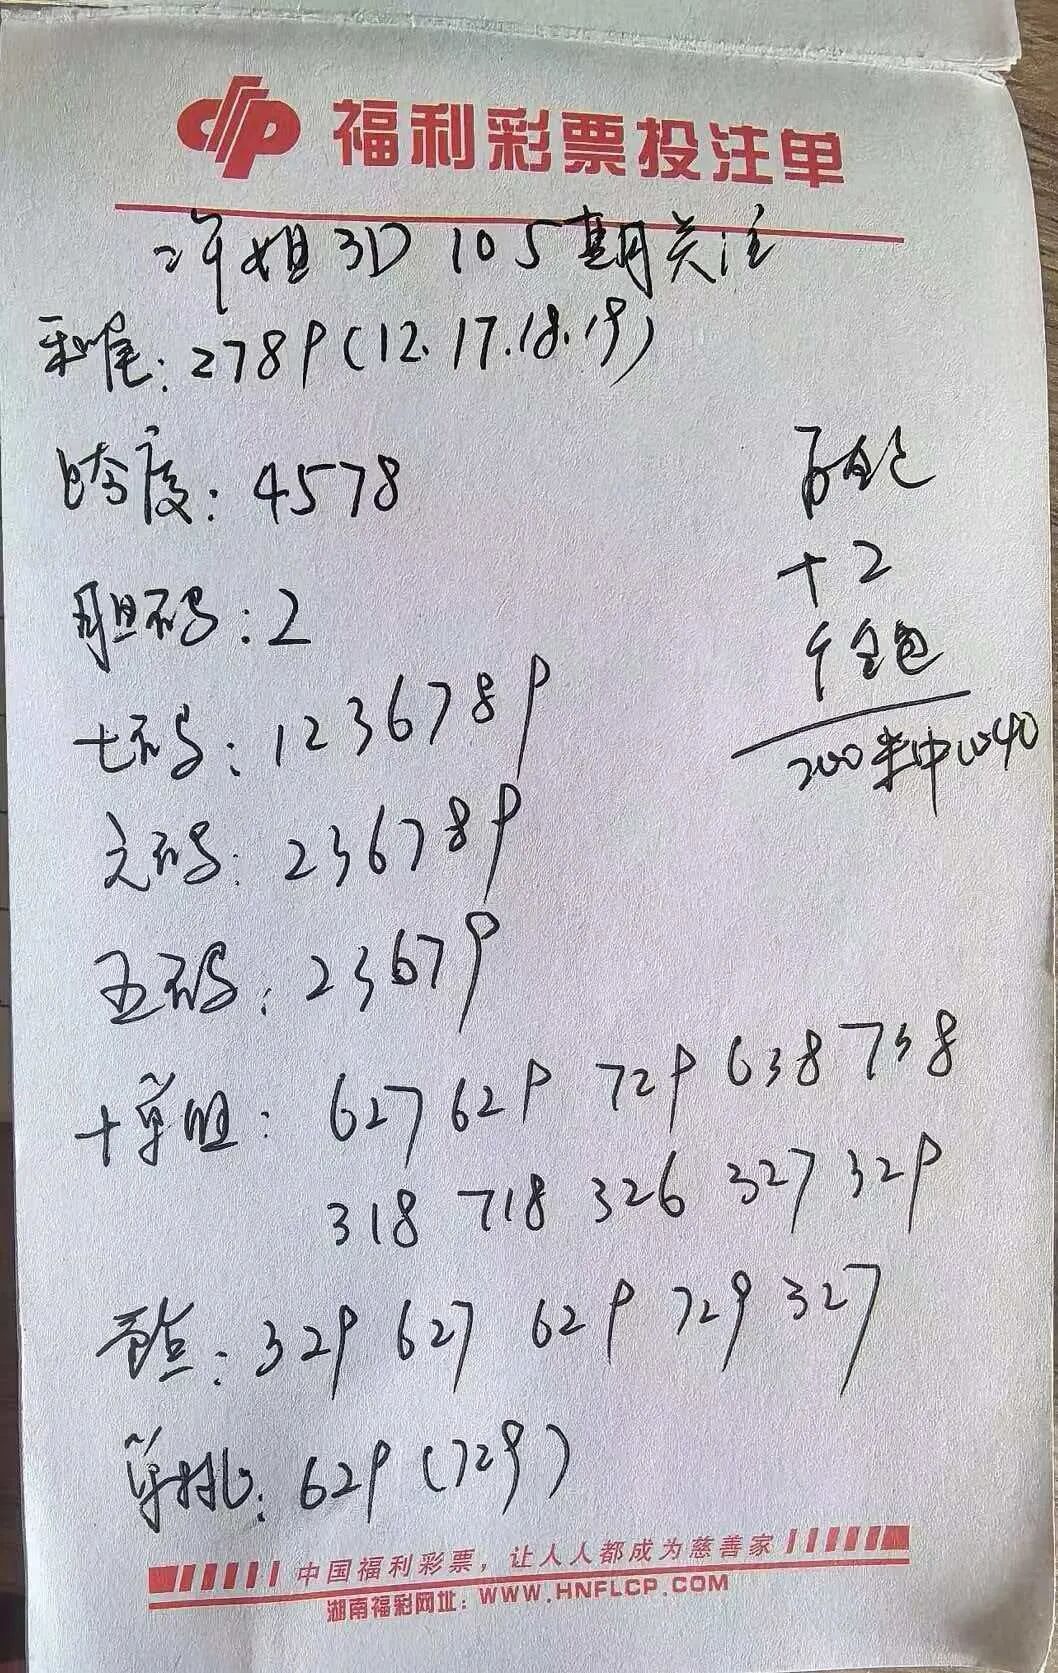 福利彩票投注单
萍姐3D 105期关注
和尾:2789(12.17.18.19)
跨度:4578
百全包
+2
个全包
200米中1040
胆码:2
七码:1236789
六码:236789
五码:23679
十单组:627 629 729 638 738
318 718 326 327 329
重点:329 627 629 729 327
单挑:629(729)
中国福利彩票，让人人都成为慈善家
湖南福彩网址：WWW.HNFLCP.COM